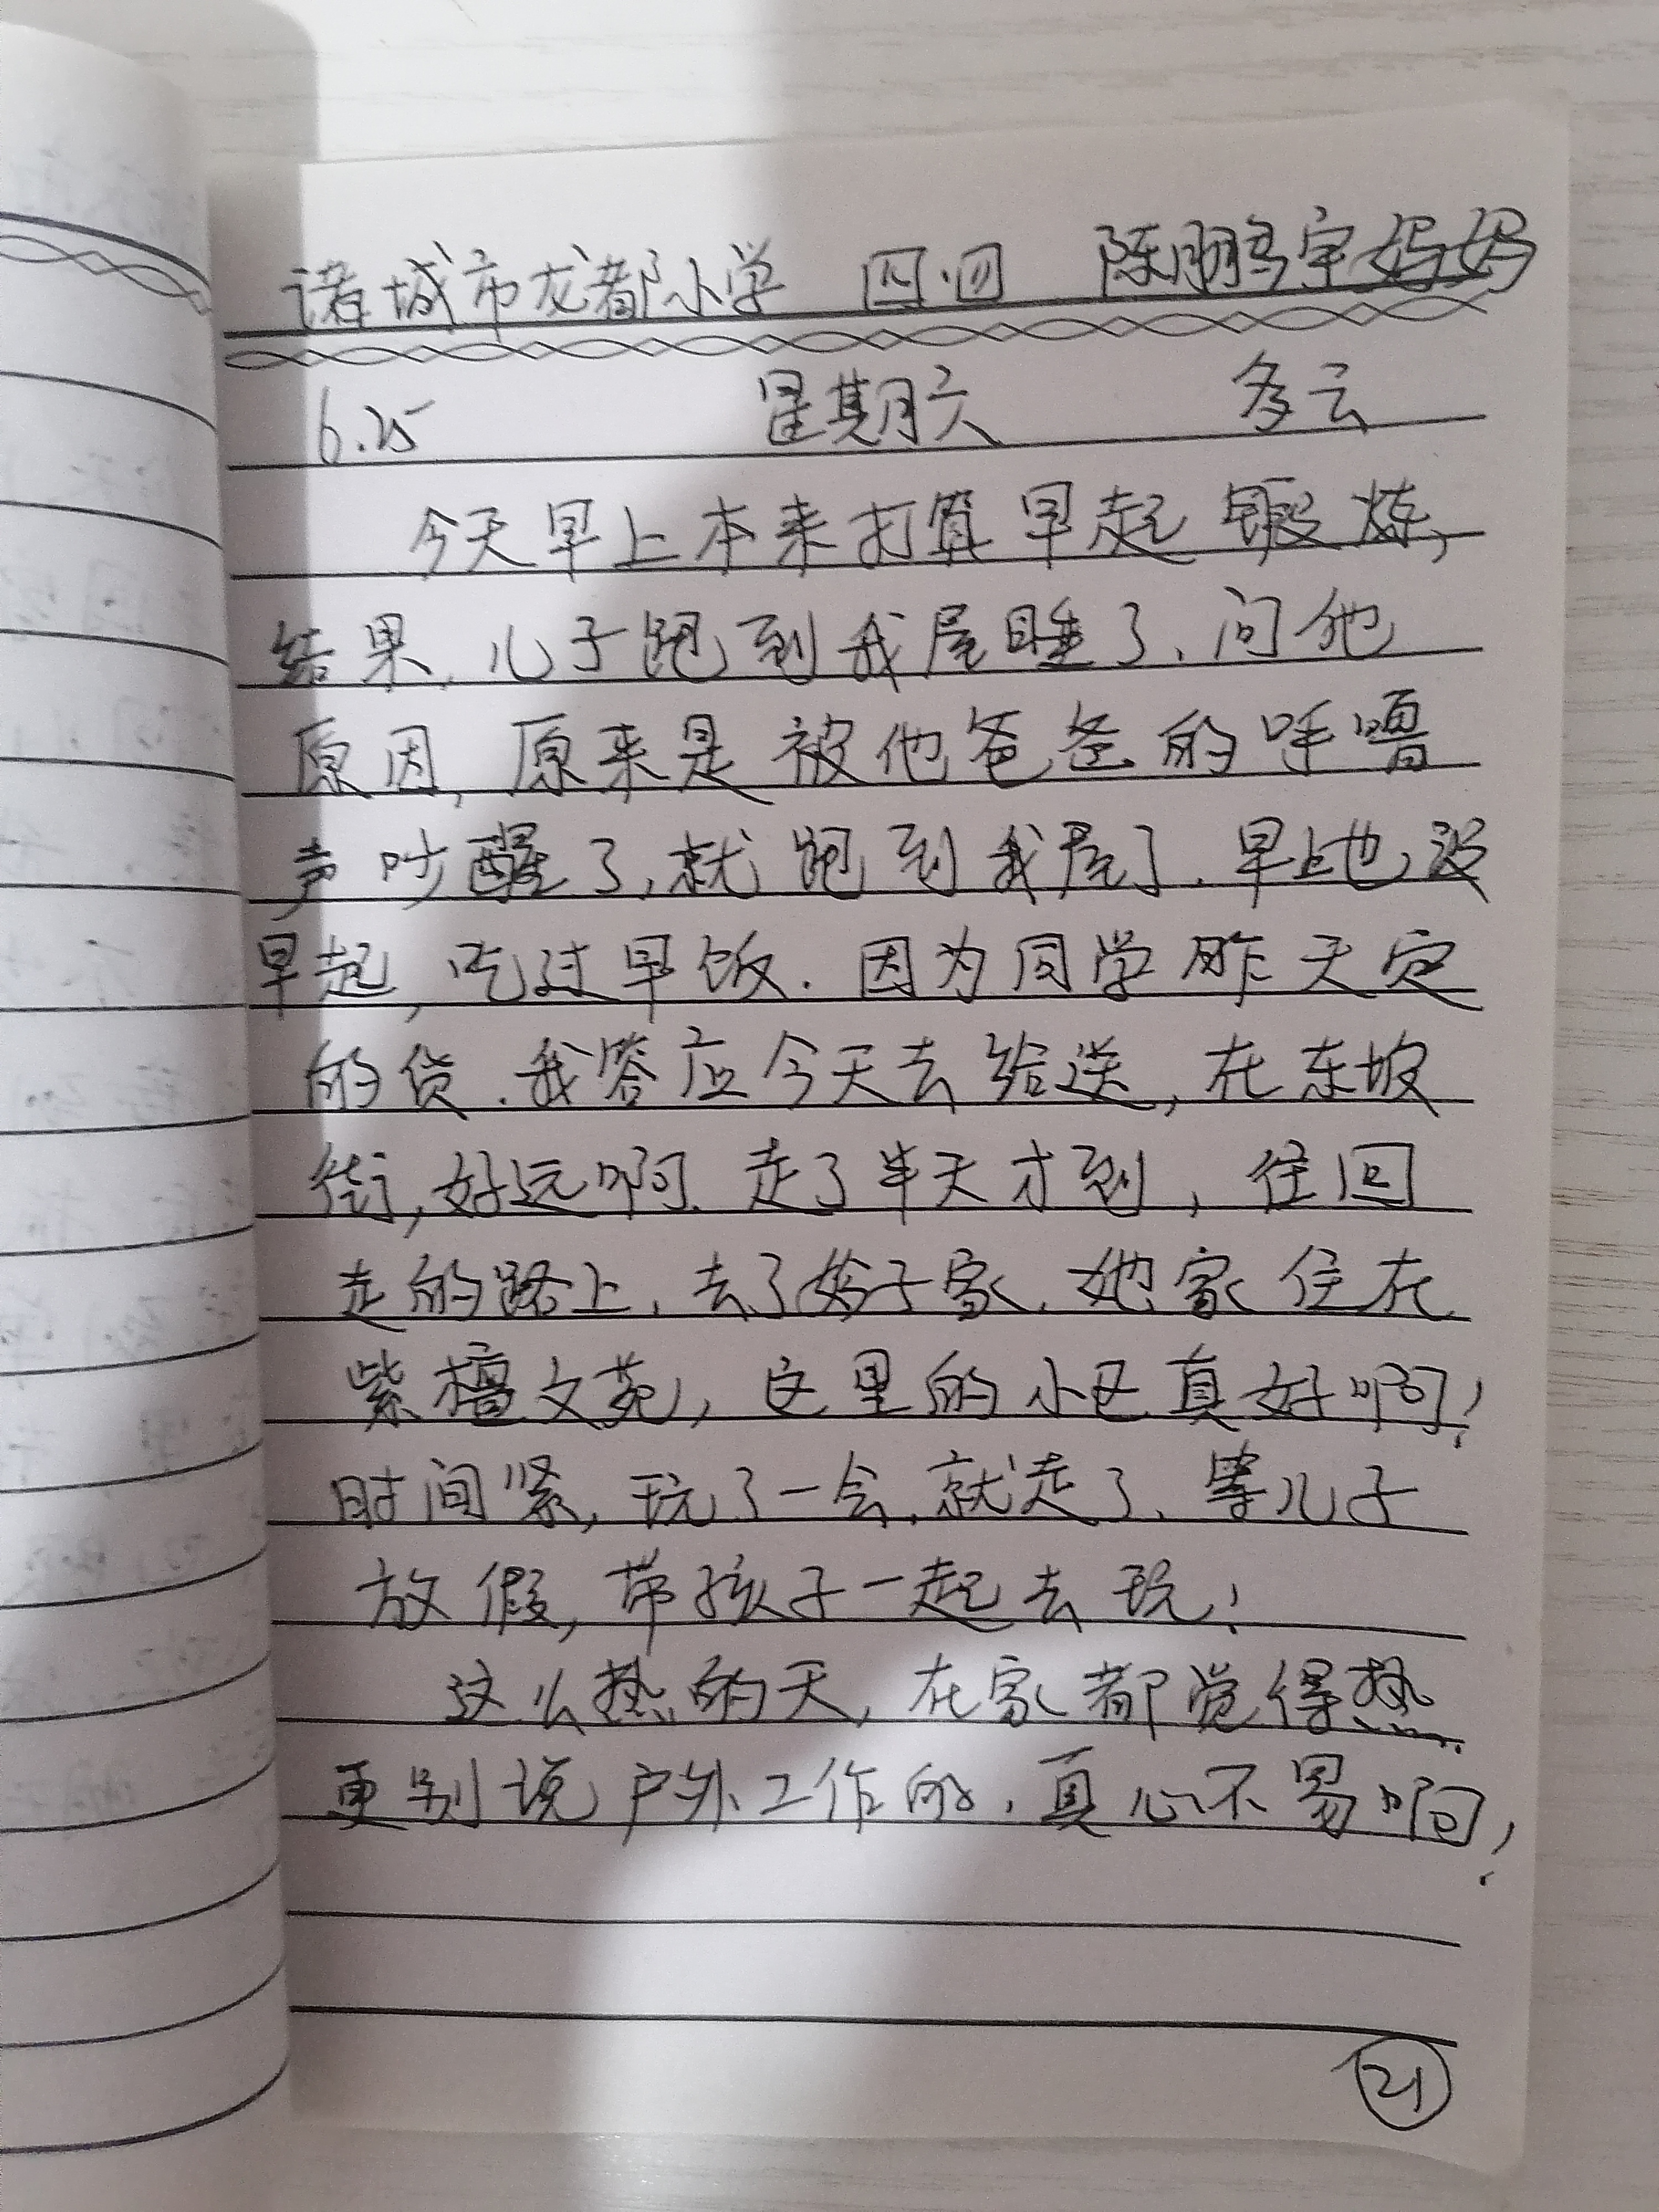 诸城市龙都小学 四.四 陈鹏宇妈妈
6.25 星期六 多云
今天早上本来打算早起锻炼,
结果,儿子跑到我屋睡了、问他
原因,原来是被他爸爸的呼噜
声吵醒了,就跑到我屋了.早上也没
早起,吃过早饭.因为同学昨天定
的货.我答应今天去给送,在东坡
街,好远啊.走了半天才到,往回
走的路上,去了婷子家.她家住在
紫檀文苑,这里的小区真好啊!
时间紧,玩了一会,就走了、等儿子
放假,带孩子一起去玩!
这么热的天,在家都觉得热.
更别说户外工作的.真心不易啊!
21